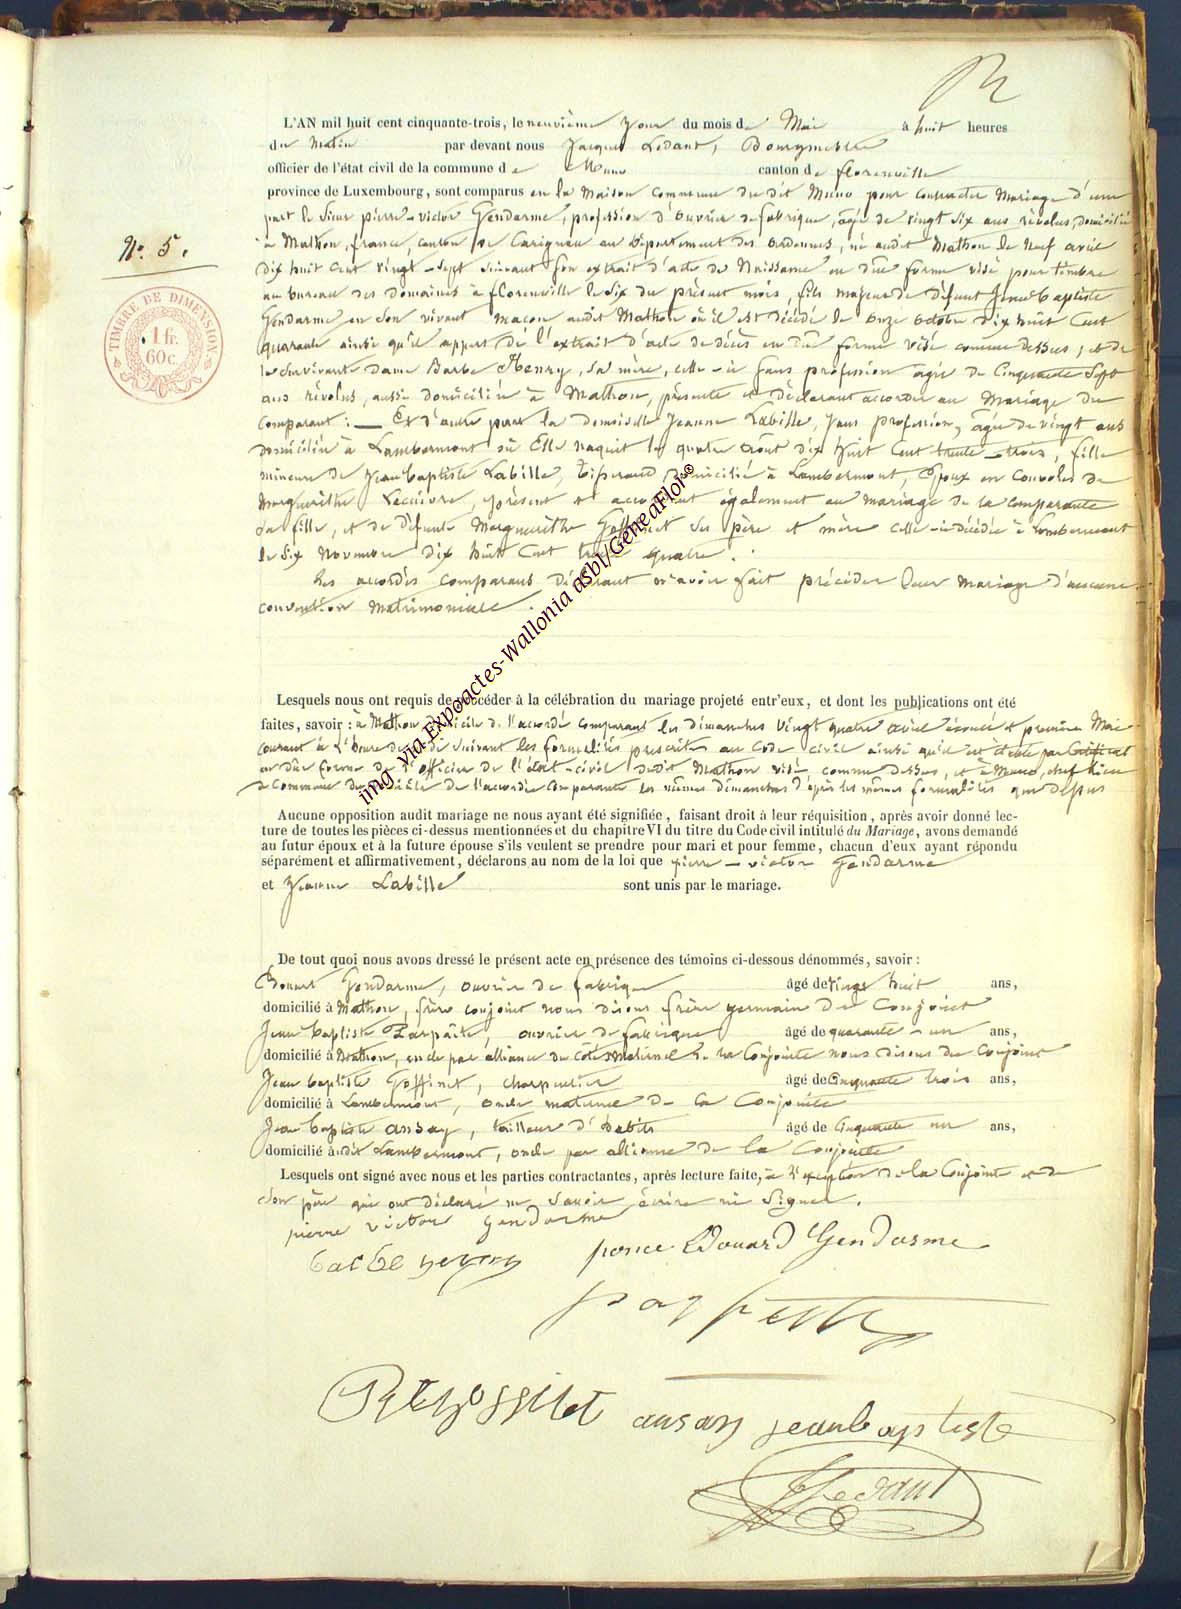 L'AN mil huit cent cinquante-trois, le neuvième Jour du mois de Mai à huit heures
du Matin par devant nous Jacques Ledant, Bourgmestre
officier de l'état civil de la commune de Muno canton de florenville
province de Luxembourg, sont comparus en la Maison Commune du dit Muno pour contracter Mariage d'une
part le Sieur pierre-victor Gendarme, profession d'ouvrier de fabrique, âgé de vingt six ans révolus, domicilié
N° 5.
à Mathon, france, canton de Carignan au Département des ardennes, né audit Mathon le Neuf avril
dix huit Cent vingt-sept suivant son extrait d'acte de Naissance en due forme visé pour timbre
au bureau des Domaines à florenville le six du présent mois, fils majeur de défunt Jean baptiste
TIMBRE DE DIMENSION
1 fr.
60 c.
Gendarme en son vivant maçon audit Mathon où il est décédé le onze octobre dix huit Cent
quarante ainsi qu'il appert de l'extrait d'acte de décès en due forme visé comme dessus, et de
la survivante dame Barbe Henry, sa mère, celle-ci sans profession âgée de Cinquante Sept
ans révolus, aussi domiciliée à Mathon, présente et déclarant accorder au Mariage du
comparant : — Et d'autre part la demoiselle Jeanne Labille, sans profession, âgée de vingt ans
domiciliée à Lambermont où Elle naquit le quatre août dix huit Cent trente-trois, fille
mineure de Jean baptiste Labille, tisserand domicilié à Lambermont, Epoux en Convoles de
Marguerithe Lecuivre, présent et accordant également au Mariage de la comparante
sa fille, et de défunte Marguerithe Goffinet ses père et mère celle-ci décédée à Lambermont
le Six Novembre dix huit Cent trente quatre.
Les accordés comparans déclarant n'avoir fait précéder leur mariage d'aucune
convention matrimoniale.
Lesquels nous ont requis de procéder à la célébration du mariage projeté entr'eux, et dont les publications ont été
faites, savoir : à Mathon domicile de l'accordé comparant les dimanches vingt quatre avril écoulé et premier Mai
courant à l'heure de midi suivant les formalités prescrites au Code civil ainsi qu'il est établi par Certificat
en due forme de l'officier de l'état-civil dudit Mathon visé comme dessus, et à Muno, chef lieu
de Commune du domicile de l'accordée Comparante les mêmes dimanches d'après les mêmes formalités que dessus
Aucune opposition audit mariage ne nous ayant été signifiée, faisant droit à leur réquisition, après avoir donné lec-
ture de toutes les pièces ci-dessus mentionnées et du chapitre VI du titre du Code civil intitulé du Mariage, avons demandé
au futur époux et à la future épouse s'ils veulent se prendre pour mari et pour femme, chacun d'eux ayant répondu
séparément et affirmativement, déclarons au nom de la loi que pierre-victor Gendarme
et Jeanne Labille sont unis par le mariage.
De tout quoi nous avons dressé le présent acte en présence des témoins ci-dessous dénommés, savoir :
Gendarme, ouvrier de fabrique âgé de vingt huit ans,
domicilié à Mathon, frère conjoint nous disons frère germain du Conjoint
Jean baptiste Parpaite, ouvrier de fabrique âgé de quarante-un ans,
domicilié à Mathon, oncle par alliance du côté Maternel de la Conjointe nous disons du Conjoint
Jean baptiste Goffinet, charpentier âgé de Cinquante trois ans,
domicilié à Lambermont, oncle maternel de la Conjointe
Jean baptiste ansay, tailleur d'habits âgé de Cinquante un ans,
domicilié audit Lambermont, oncle par alliance de la Conjointe
Lesquels ont signé avec nous et les parties contractantes, après lecture faite, à l'exception de la Conjointe et de
son père qui ont déclaré ne savoir écrire ni Signer.
pierre victor Gendarme
barbe henry ponce Edouard Gendarme
ansay jeanbaptiste
J Ledant
img via Expoactes-Wallonia asbl/GeneaFloi©